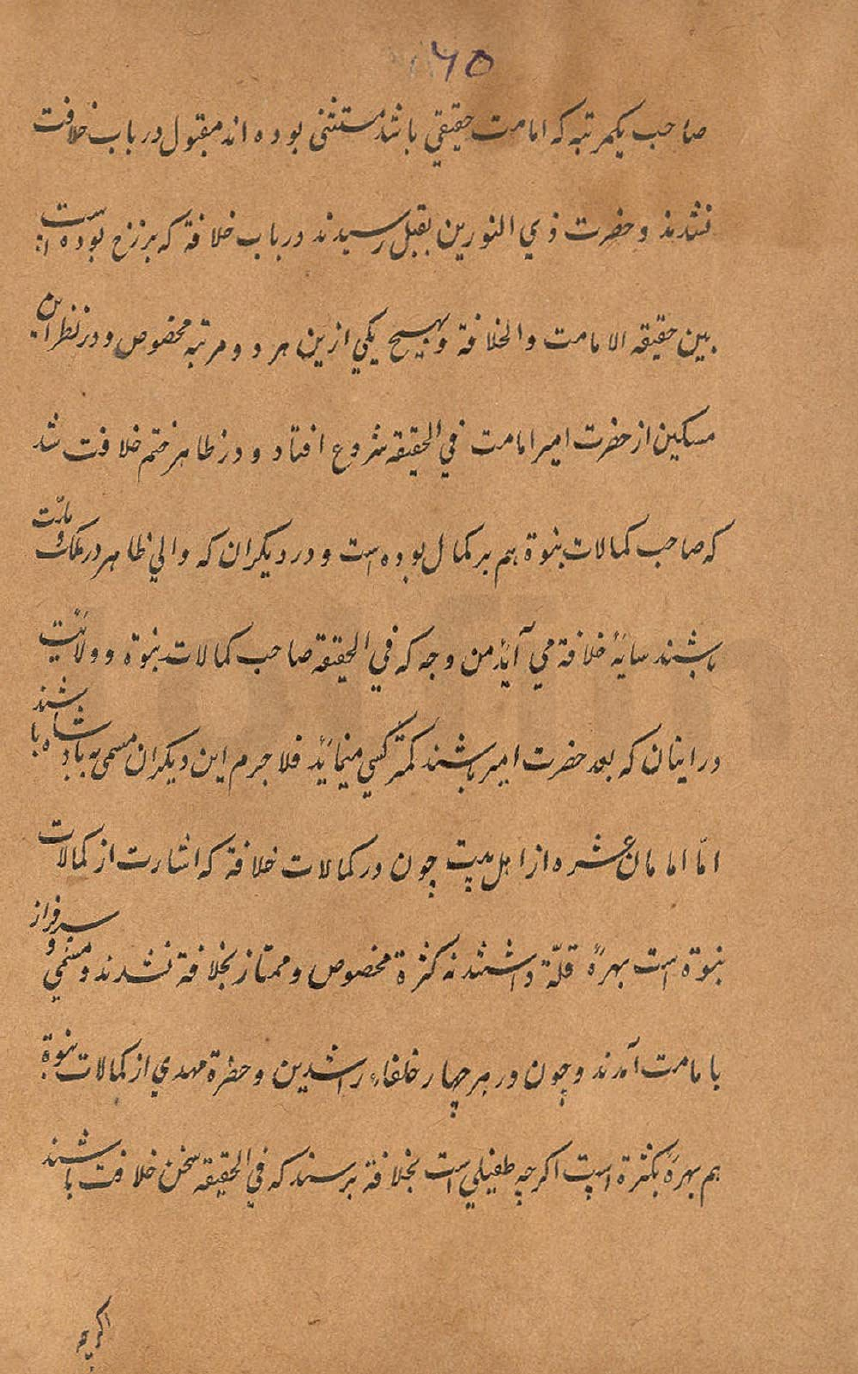 ۶۵
صاحب یکمرتبه که امامت حقیقي باشد مستثنی بوده اند مقبول در باب خلافت
نشدند و حضرت ذي النورین بقبل رسیدند در باب خلافة که برزخ بوده است
بین حقیقه الامامت والخلافة و بهیچ یکي ازین هر دو مرتبه مخصوص و در نظر این
مسکین از حضرت امیر امامت في الحقیقه شروع افتاد و در ظاهر ختم خلافت شد
که صاحب کمالات بنوة هم بر کمال بوده است و در دیکران که والي ظاهر در ملک و ملّت
باشند سایهٔ خلافة مي آید من وجه که في الحقیقة صاحب کمالات بنوة و ولایت
در اینان که بعد حضرت امیر باشند کمتر کسي مینماید فلا جرم این دیکران مسمی به بادشاه باشند
امّا امامان عشره از اهل بیت چون در کمالات خلافة که اشارت از کمالات
بنوة است بهرهٔ قلّة داشتند نه کثرة مخصوص و ممتاز بخلافة نشدند و مسمي و سرفراز
بامامت آمدند و چون در هر چهار خلفاء راشدین و حضرة مهدي از کمالات بنوة
هم بهرهٔ بکثرة است اکرچه طفیلي است بخلافة برسند که في الحقیقه سخن خلافت باشند
اکرچه